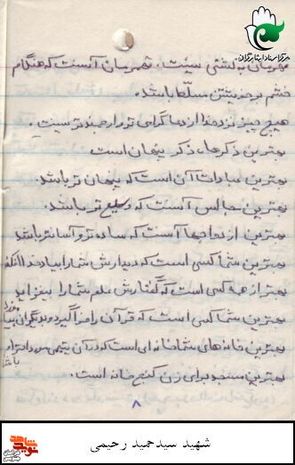 قهرمان به کشتی نیست، قهرمان آنست که هنگام
خشم بر خویشتن مسلط باشد.
هیچ چیز نزد خدا از دعا گرامی تر و ارجمندتر نیست.
بهترین ذکرها، ذکر پنهان است
بهترین عبادات آن است که پنهان تر باشد.
بهترین مجالس آنست که وسیع تر باشد.
بهترین ازدواجها آنست که ساده تر و آسانتر باشد
بهترین شما کسی است که دیدارش شما را بیاد خدا
بهتر از همه کسی است که گفتارش علم شما را بیفزاید
بهترین شما کسی است که قرآن را فرا گیرد و بدیگران
بهترین خانه های شما خانه ای است که در آن یتیمی مورد احترام باشد
بهترین مسجد برای زن کنج خانه است.
۸
شهید سیدحمید رحیمی